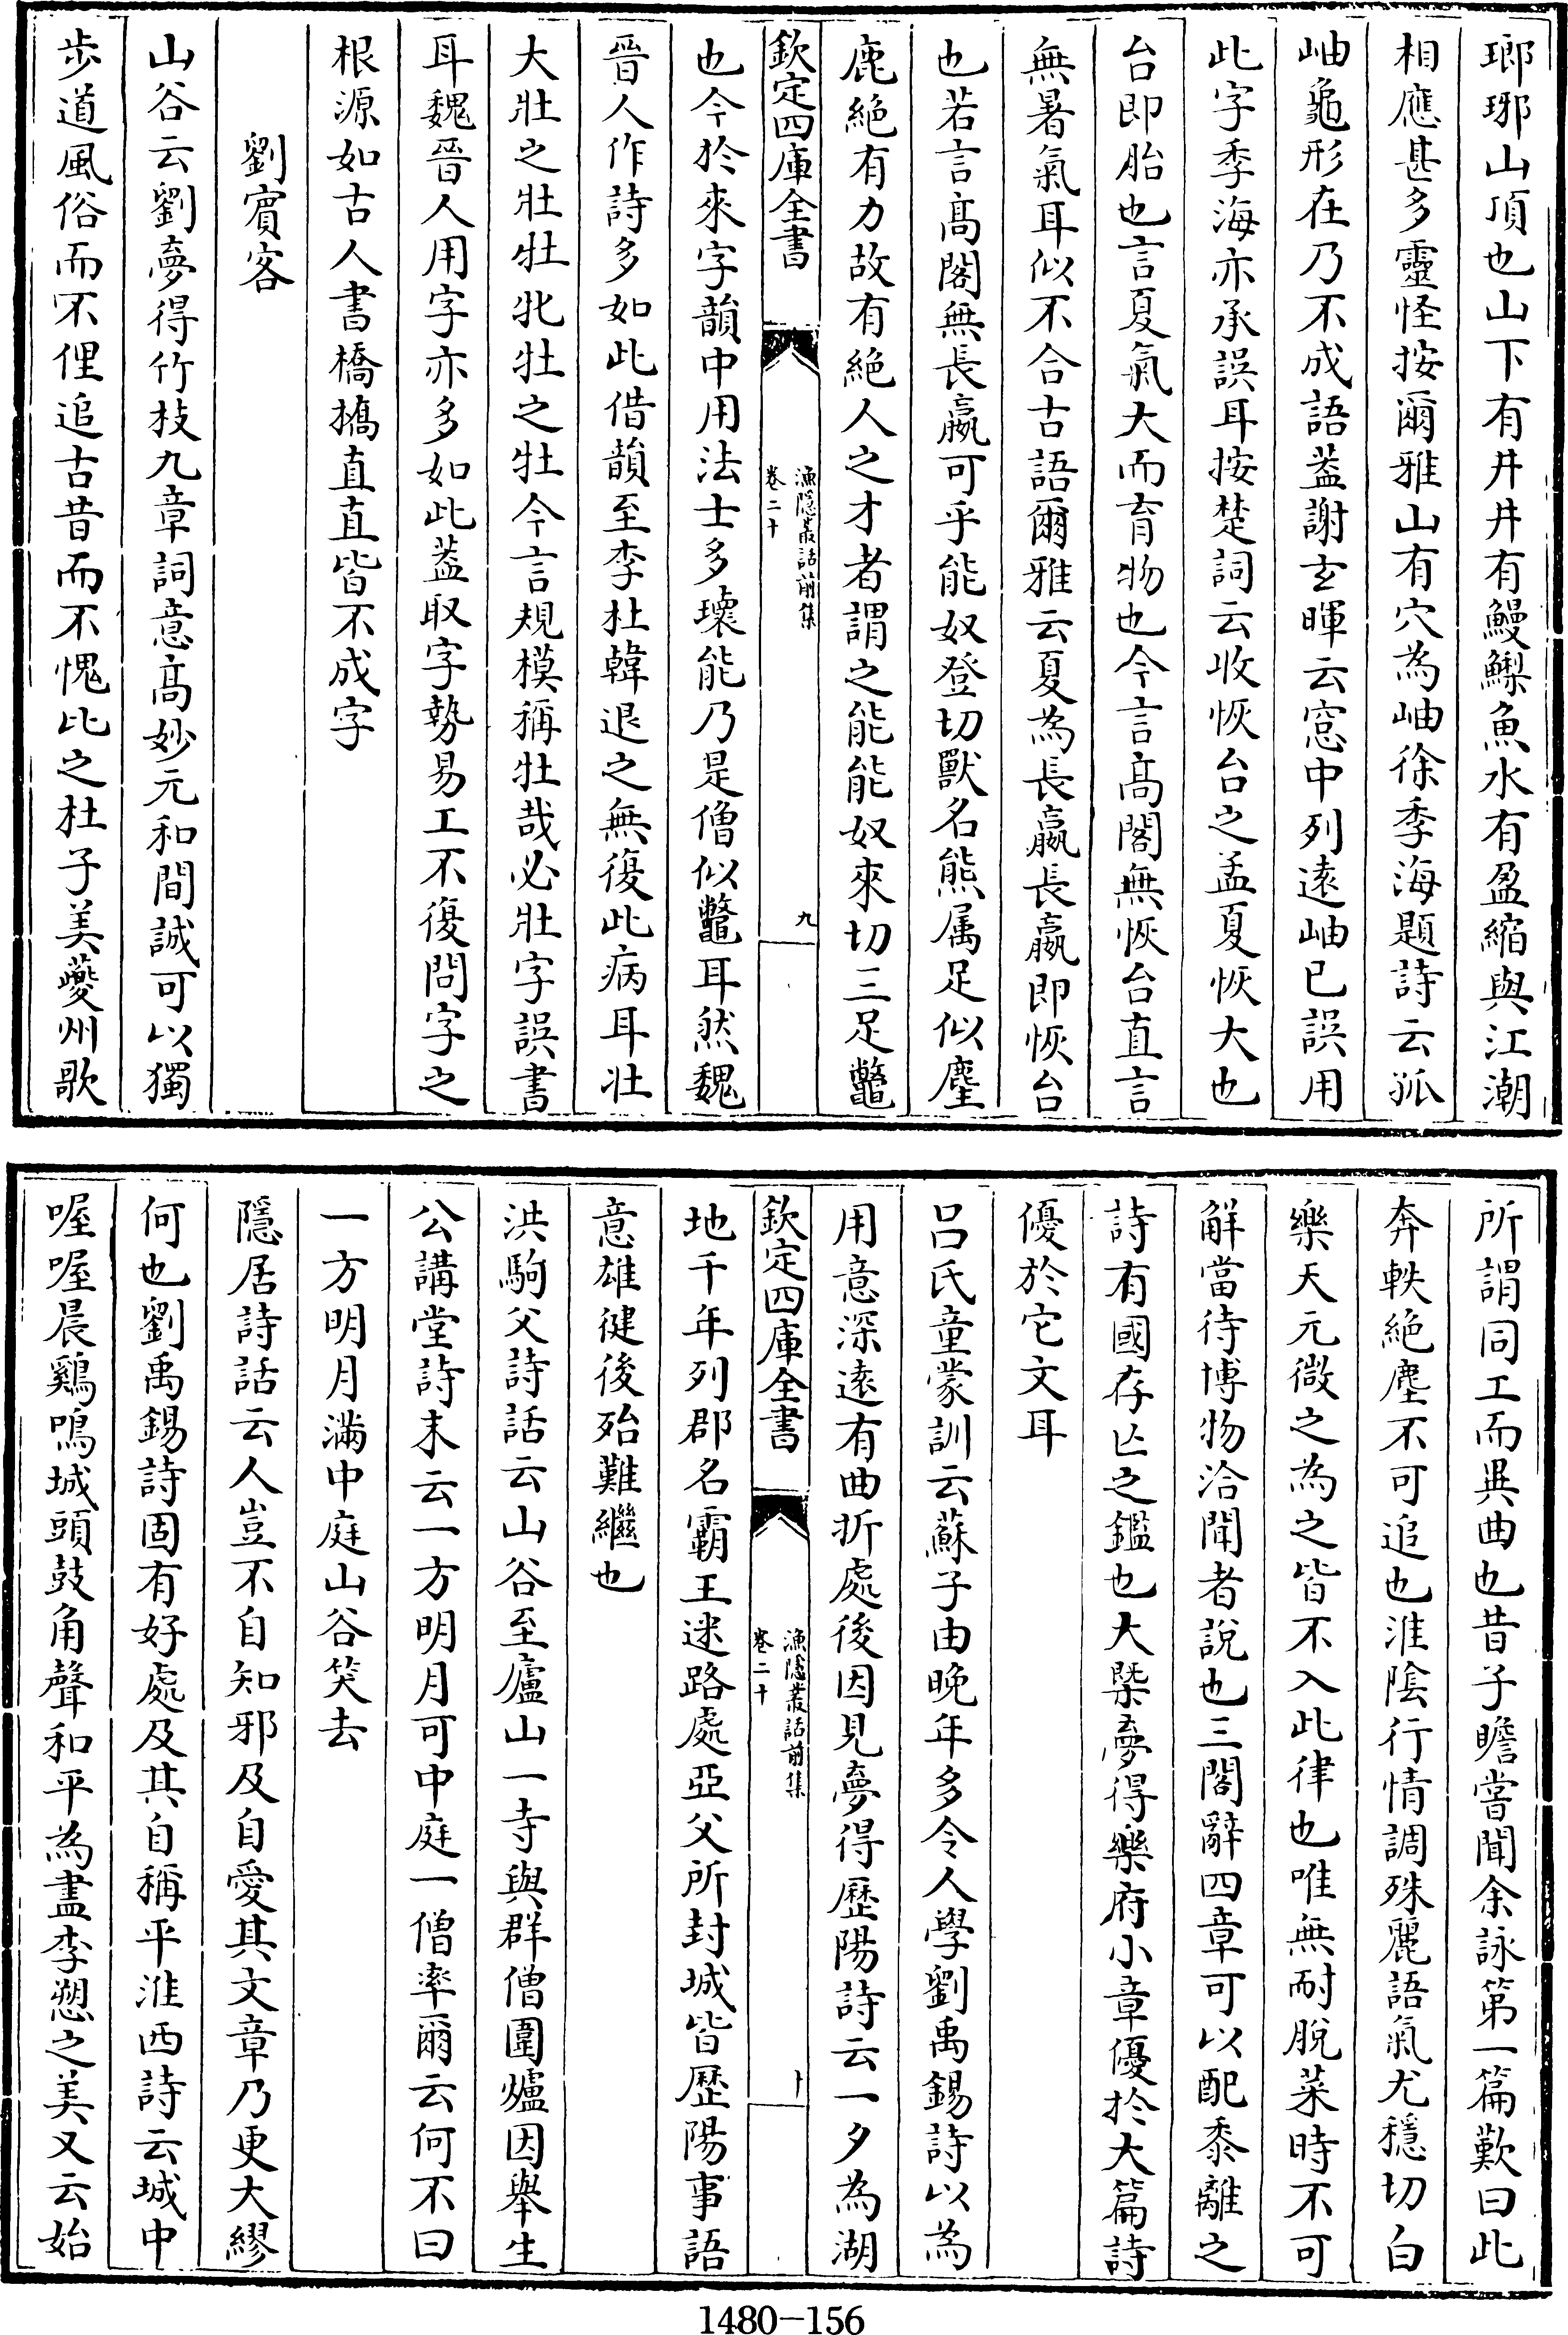 瑯琊山頂也山下有井井有鰻鱺魚水有盈縮與江潮
相應甚多靈怪按爾雅山有穴為岫徐季海題詩云孤
岫龜形在乃不成語葢謝玄暉云窓中列逺岫已誤用
此字季海亦承誤耳按楚詞云收恢台之孟夏恢大也
台即胎也言夏氣大而育物也今言髙閣無恢台直言
無暑氣耳似不合古語爾雅云夏為長嬴長嬴即恢台
也若言髙閣無長嬴可乎能奴登切獸名熊属足似塵
鹿絶有力故有絶人之才者謂之能能奴來切三足鼈
欽定四庫全書
漁隱叢話前集
卷二十
九
也今於來字韻中用法士多壞能乃是僧似鼈耳然魏
晉人作詩多如此借韻至李杜韓退之無復此病耳壯
大壯之壯牡牝牡之牡今言規模稱牡哉必壯字誤書
耳魏晉人用字亦多如此葢取字勢易工不復問字之
根源如古人書橋撟直直皆不成字
劉賔客
山谷云劉夢得竹枝九章詞意髙妙元和間誠可以獨
步道風俗而不俚追古昔而不愧比之杜子美夔州歌
所謂同工而異曲也昔子瞻嘗聞余詠第一篇歎曰此
奔軼絶塵不可追也淮陰行情調殊麗語氣尤穩切白
樂天元微之為之皆不入此律也唯無耐脫菜時不可
解當待博物洽聞者說也三閣辭四章可以配黍離之
詩有國存亡之鑑也大槩夢得樂府小章優於大篇詩
優於它文耳
呂氏童蒙訓云蘇子由晚年多令人學劉禹錫詩以為
用意深逺有曲折處後因見夢得歷陽詩云一夕為湖
欽定四庫全書
漁隱叢話前集
卷二十
十
地千年列郡名霸王迷路處亞父所封城皆歷陽事語
意雄健後殆難繼也
洪駒父詩話云山谷至廬山一寺與群僧圍爐因舉生
公講堂詩末云一方明月可中庭一僧率爾云何不曰
一方明月滿中庭山谷笑去
隱居詩話云人豈不自知邪及自愛其文章乃更大繆
何也劉禹錫詩固有好處及其自稱平淮西詩云城中
喔喔晨鷄鳴城頭鼓角聲和平為盡李愬之美又云始
1480-156